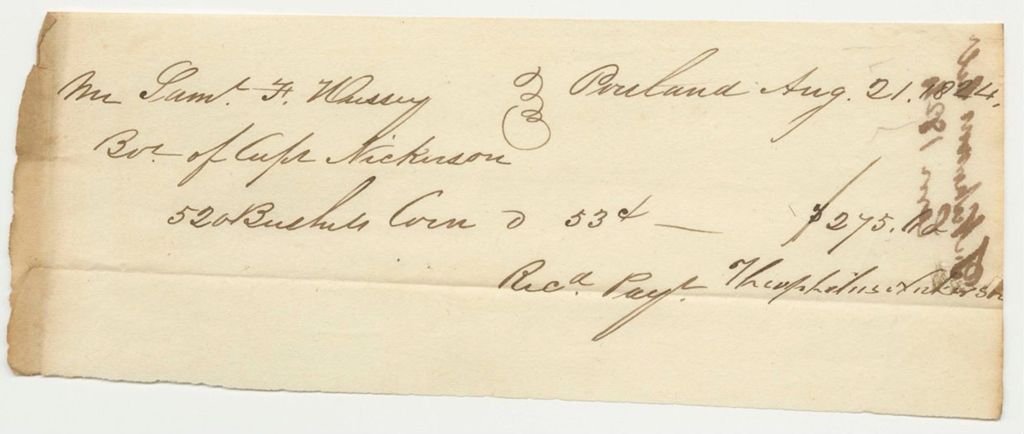 Mr Saml. F. Hussey Portland Aug. 21. 1824,
Bot of Capt Nickerson
520 Bushels Corn @ 53¢ — $275.
Recd. Payt. Theophilus Nickerson